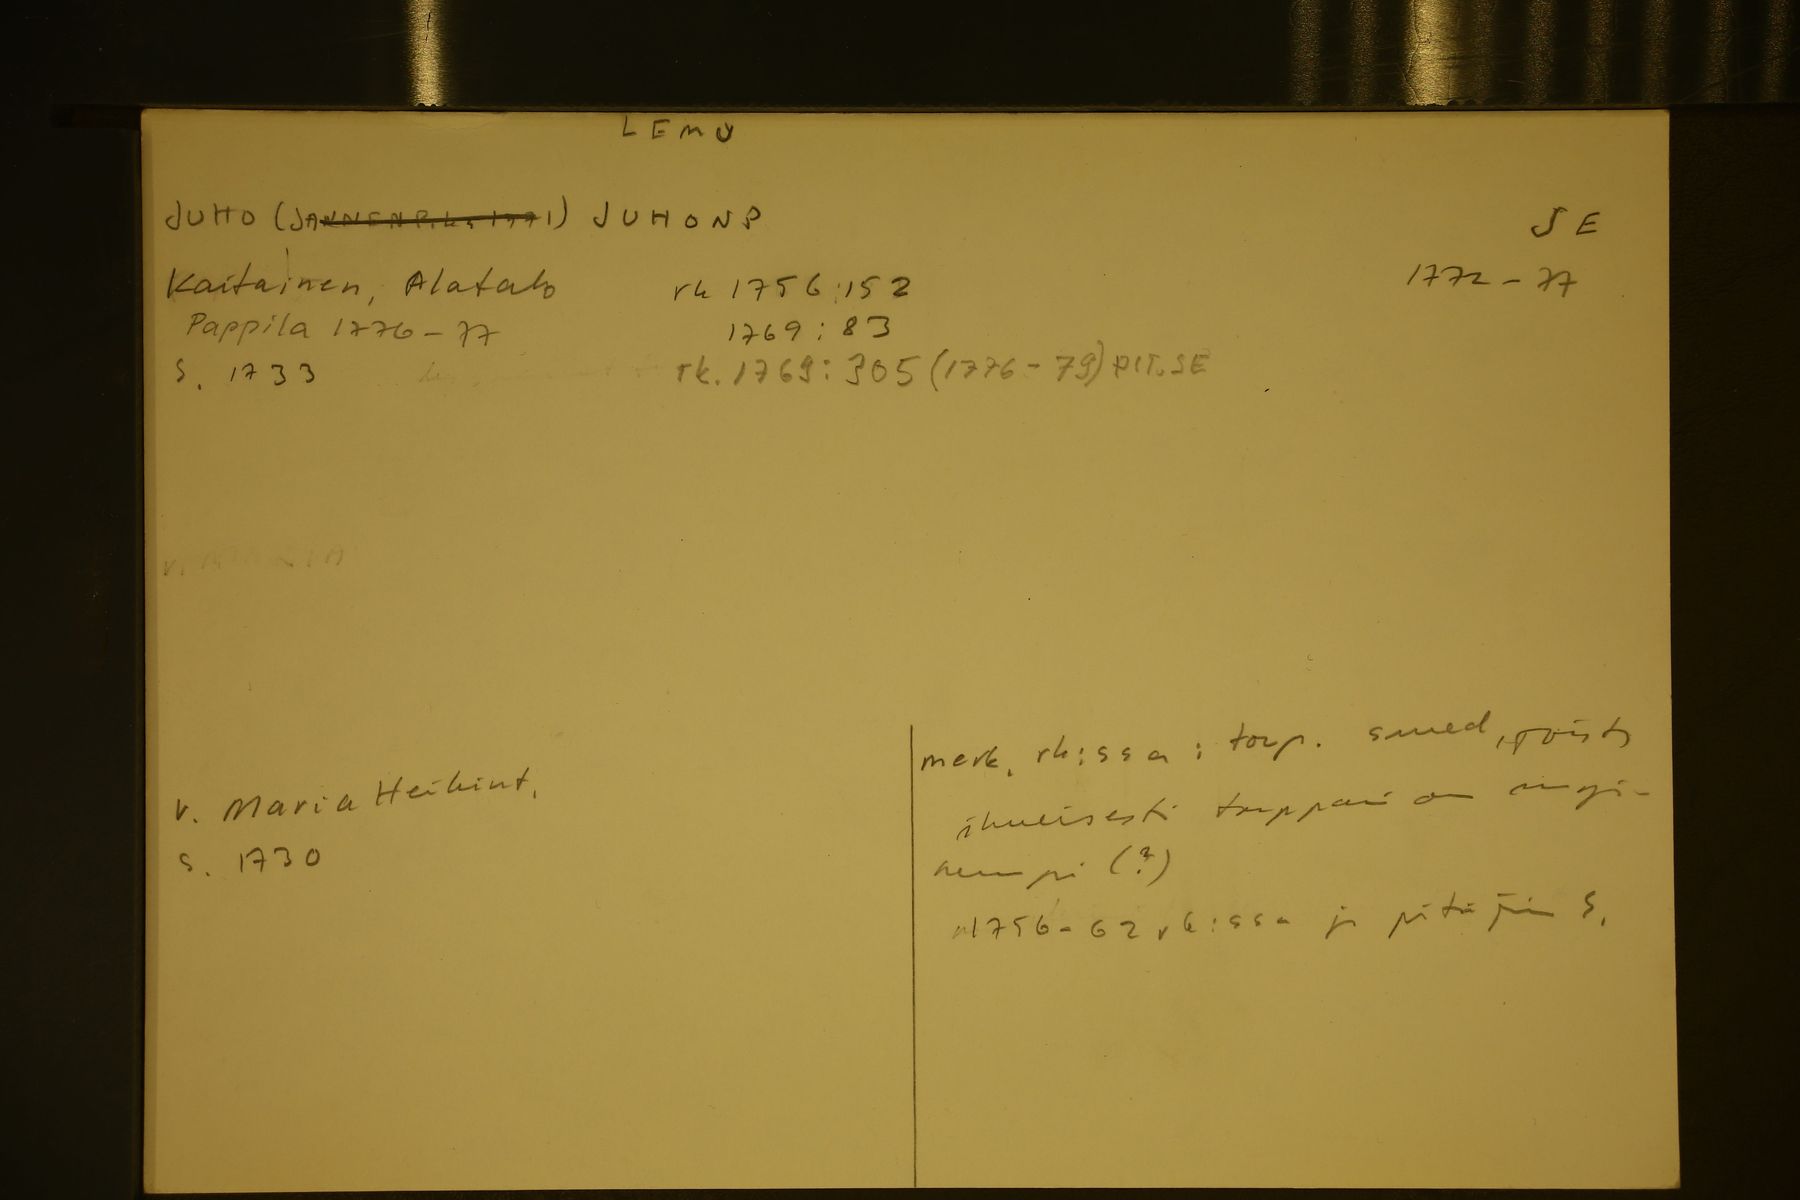 LEMU
JUHO (JANNENP. 1771) JUHONP
SE
Kaitainen, Alatalo rk 1756:152
1772-77
Pappila 1776-77 1769:83
s. 1733 rk. 1769:305 (1776-79) PIT.SE
merk. rk:ssa: torp. smed,
v. Maria Heikint.
torppari on
s. 1730
(?)
1756-62 rk:ssa jo pitäjän s.